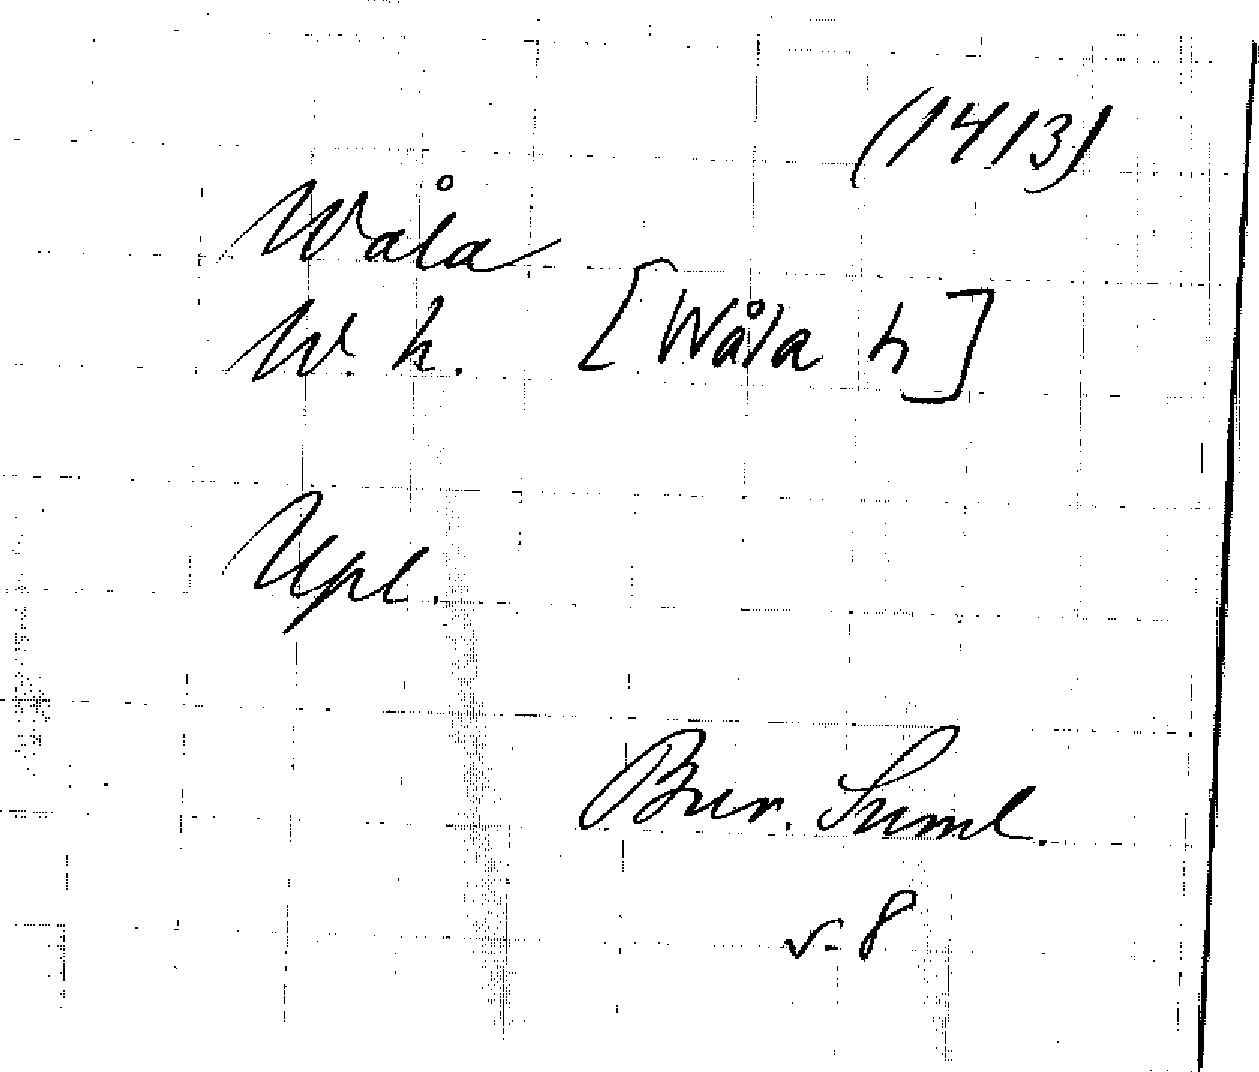 (1413)
Wåla
W. h. [Wåla h]
Upl.
Bur. Suml.
v. 8